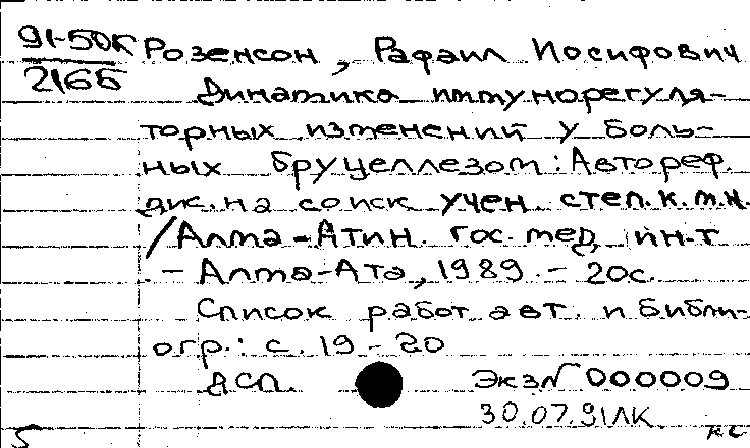 91-50К Розенсон, Рафаил Иосифович
2166 Динамика иммунорегуля-
торных изменений у боль-
ных бруцеллезом: Автореф.
дис. на соиск учен. степ. к.м.н.
/Алма-Атин. гос. мед. ин-т
- Алма-Ата, 1989. - 20с.
Список работ авт. и библи-
огр.: с. 19-20
ДСП. Экз№ 000009
30.07.91 ЛК.
5 к.с